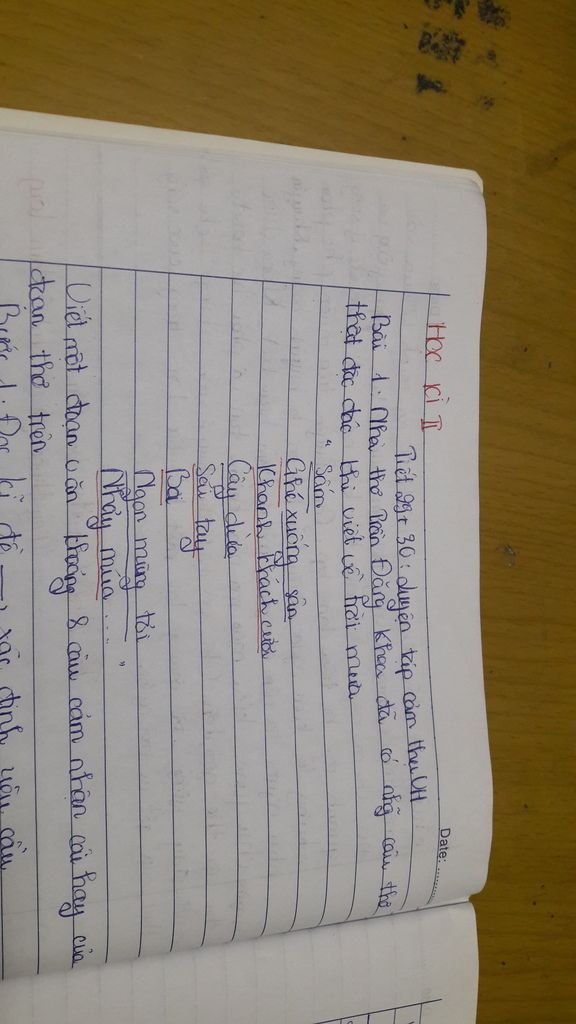 Date: ............
Học kì II
Tiết 29 + 30: Luyện tập cảm thụ VH
Bài 1. Nhà thơ Trần Đăng Khoa đã có nhữg câu thơ
thật đặc sắc khi viết về trời mưa
" Sấm
Ghé xuống sân
Khanh khách cười
Cây dừa
Sải tay
Bơi
Ngọn mùng tơi
Nhảy múa ... "
Viết một đoạn văn khoảng 8 câu cảm nhận cái hay của
đoạn thơ trên
Bước 1: Đọc kĩ đề → xác định yêu cầu